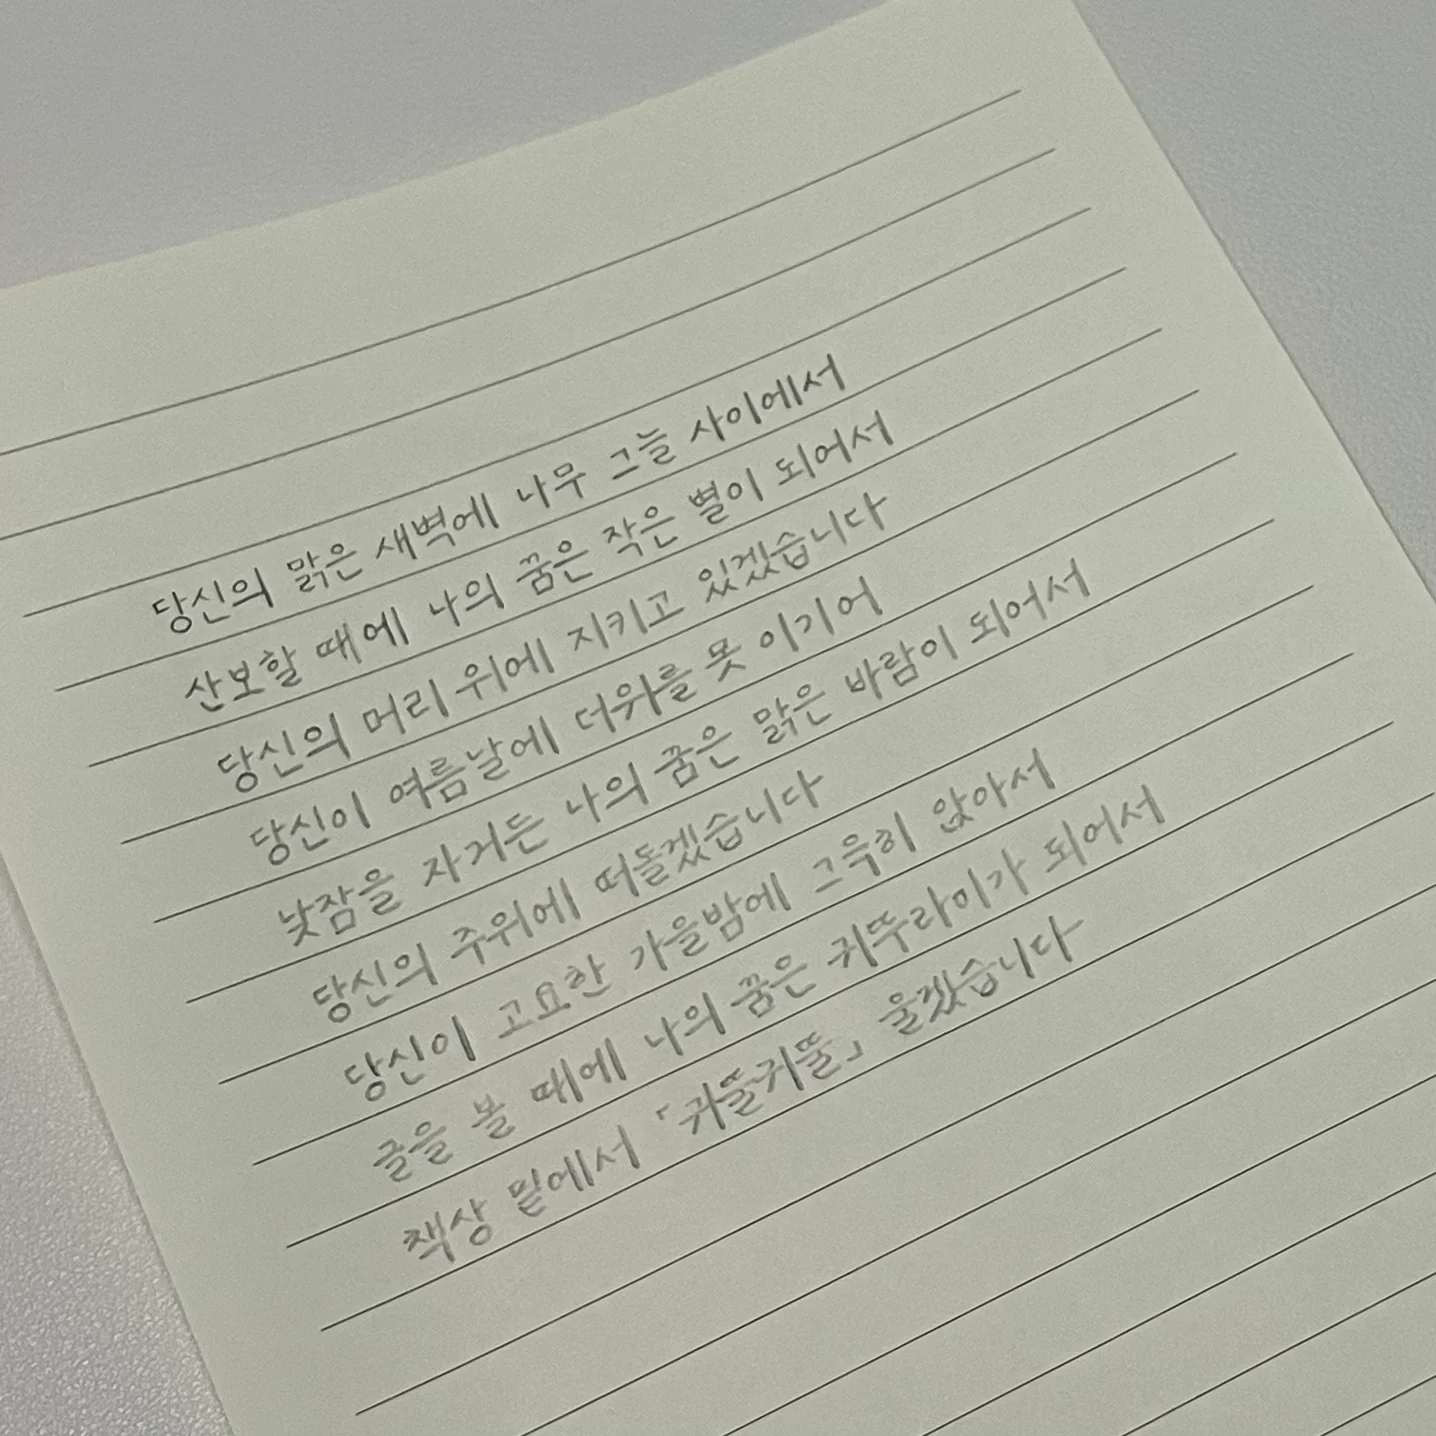 당신의 맑은 새벽에 나무 그늘 사이에서
산보할 때에 나의 꿈은 작은 별이 되어서
당신의 머리 위에 지키고 있겠습니다
당신이 여름날에 더위를 못 이기어
낮잠을 자거든 나의 꿈은 맑은 바람이 되어서
당신의 주위에 떠돌겠습니다
당신이 고요한 가을밤에 그윽히 앉아서
글을 볼 때에 나의 꿈은 귀뚜라미가 되어서
책상 밑에서 「귀뚤귀뚤」 울겠습니다